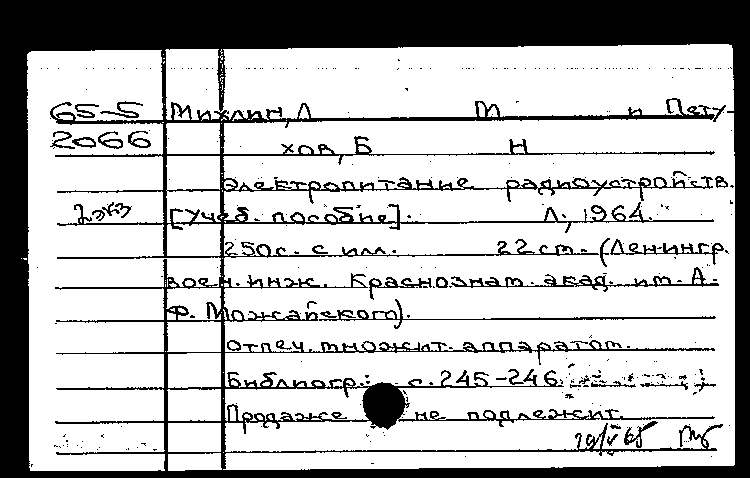 65-5 Михлин, Л М и Пету-
2066 хов, Б Н
Электропитание радиоустройств.
2 экз [Учеб. пособие]. Л., 1964.
250 с. с илл. 22 см. (Ленингр.
воен. инж. Краснознам. акад. им. А.
Ф. Можайского).
Отпеч. множит. аппаратом.
Библиогр.: с. 245-246
Продаже не подлежит.